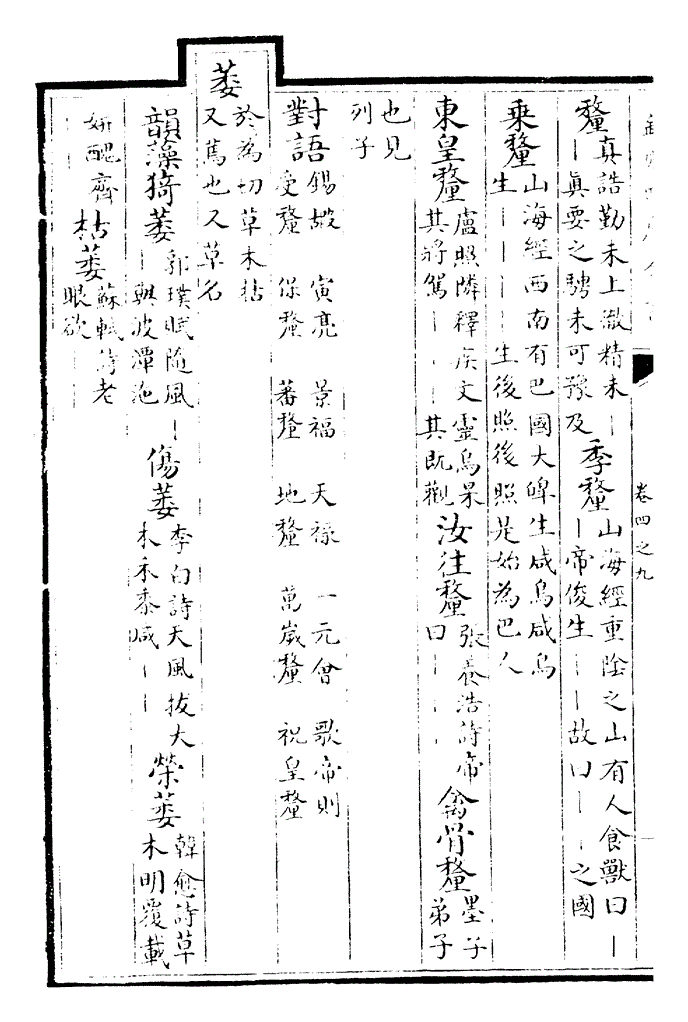 卷四之九
釐真誥勤未上徹精未｜｜真要之騁未可豫及季釐山海經重陰之山有人食獸曰｜｜帝俊生｜｜故曰｜｜之國
乘釐山海經西南有巴國大皥生咸鳥咸鳥生｜｜｜｜生後照後照是始為巴人
東皇釐盧照隣釋疾文靈烏杲其將駕｜｜｜其既觀汝往釐張養浩詩帝曰｜｜｜禽骨釐墨子弟子
也見列子
對語錫嘏 寅亮 景福 天祿 一元會 歌帝則
受釐 保釐 蕃釐 地釐 萬歲釐 祝皇釐
萎於為切草木枯又蔫也又草名
韻藻猗萎郭璞賦隨風｜｜與波潭沲傷萎李白詩天風拔大木禾黍咸｜｜榮萎韓愈詩草木明覆載
妍醜齊｜｜枯萎蘇軾詩老眼欲｜｜